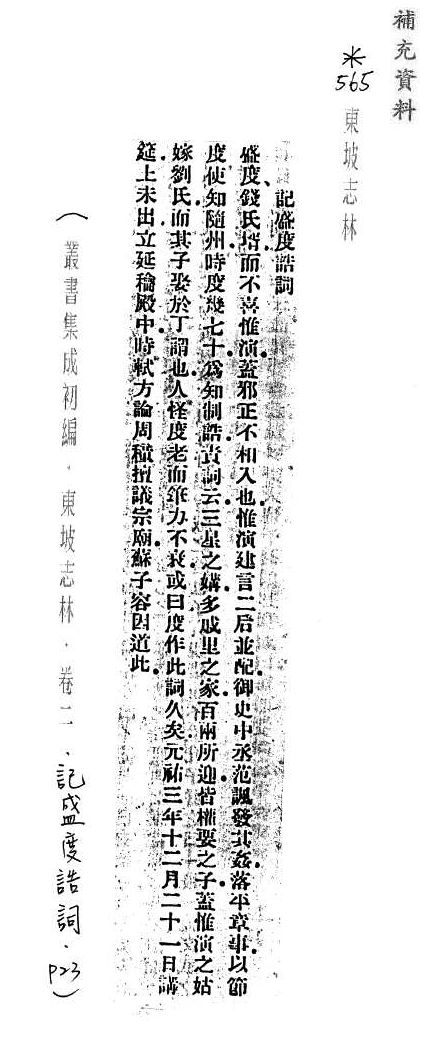 補充資料
*
565
東坡志林
記盛度誥詞
盛度錢氏壻而不喜惟演蓋邪正不相入也惟演建言二后並配御史中丞范諷發其姦落平章事以節
度使知隨州時度幾七十爲知制誥責詞云三星之媾多戚里之家百兩所迎皆權要之子蓋惟演之姑
嫁劉氏而其子娶於丁謂也人怪度老而筆力不衰或曰度作此詞久矣元祐三年十二月二十一日講
筵上未出立延和殿中時軾方論周穜擅議宗廟蘇子容因道此
(叢書集成初編．東坡志林．卷二．記盛度誥詞．P23)